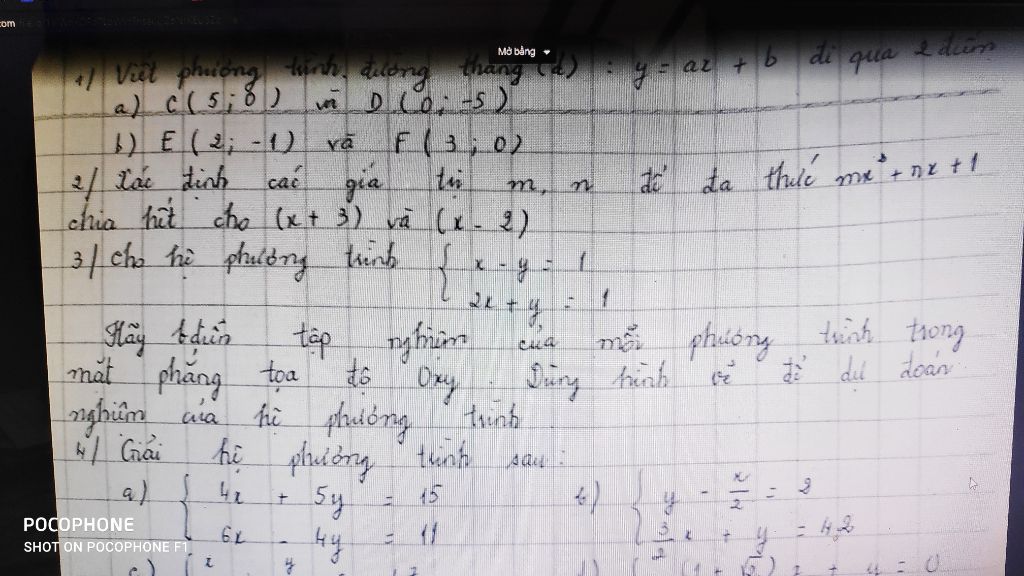 com
Mở bảng
1/ Viết phương trình đường thẳng (d) : y = ax + b đi qua 2 điểm
a) C(5; 0) và D(0; -5)
b) E(2; -1) và F(3; 0)
2/ Xác định các giá trị m, n để đa thức mx³ + nx + 1
chia hết cho (x + 3) và (x - 2)
3/ Cho hệ phương trình { x - y = 1
2x + y = 1
Hãy tập nghiệm của mỗi phương trình trong
mặt phẳng tọa độ Oxy. Dùng hình vẽ để dự đoán
nghiệm của hệ phương trình
4/ Giải hệ phương trình sau:
a) { 4x + 5y = 15 b) { y - x/2 = 2
6x - 4y = 11 3/2 x + y = 4,2
POCOPHONE
SHOT ON POCOPHONE F1